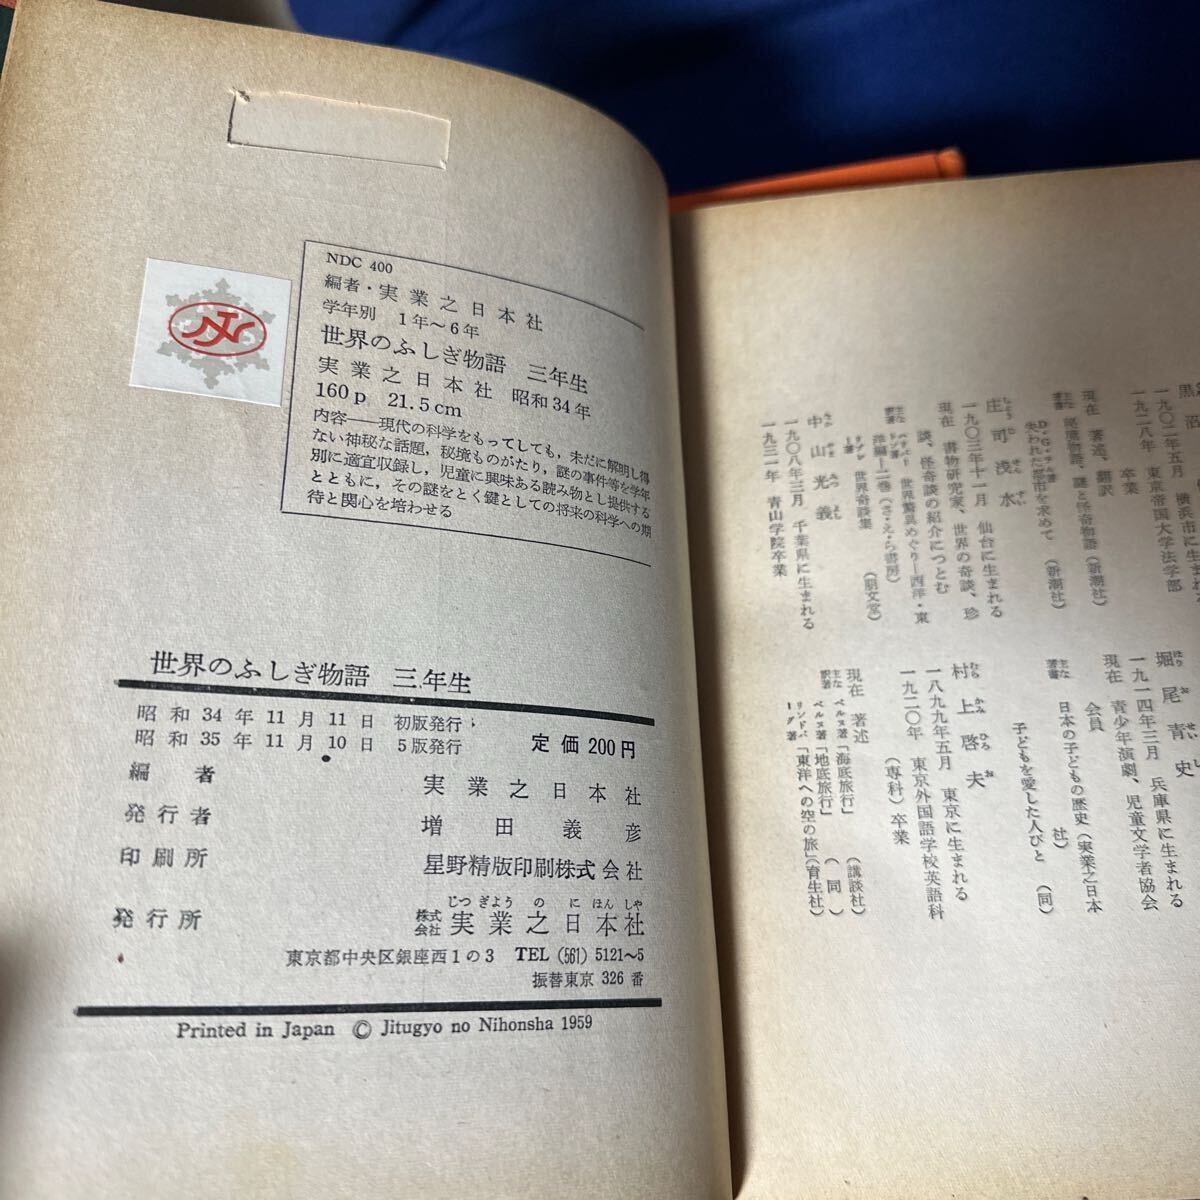 NDC 400
編者・実業之日本社
学年別 1年〜6年
世界のふしぎ物語 三年生
実業之日本社 昭和34年
160p 21.5cm
内容——現代の科学をもってしても，未だに解明し得
ない神秘な話題，秘境ものがたり，謎の事件等を学年
別に適宜収録し，児童に興味ある読み物とし提供する
とともに，その謎をとく鍵としての将来の科学への期
待と関心を培わせる
世界のふしぎ物語 三年生
昭和34年11月11日 初版発行
昭和35年11月10日 5版発行
定価200円
編者 実業之日本社
発行者 増田義彦
印刷所 星野精版印刷株式会社
じつぎょうのにほんしゃ
発行所 株式会社 実業之日本社
東京都中央区銀座西1の3 TEL (561) 5121〜5
振替東京 326 番
Printed in Japan © Jitugyo no Nihonsha 1959
黒沼
一九〇二年五月 横浜市に生まれ
一九二八年 東京帝国大学法学部
卒業
現在 著述、翻訳
尾境物語、謎と怪奇物語（新潮社）
D・G・テル著
失われた都市を求めて （新潮社）
庄司浅水
一九〇三年十一月 仙台に生まれる
現在 書物研究家、世界の奇談、珍
談、怪奇談の紹介につとむ
世界驚異めぐり—西洋・東
洋編—二巻（さ・え・ら書房）
リプレー著 世界奇談集 （朋文堂）
中山光義
一九〇八年三月 千葉県に生まれる
一九三一年 青山学院卒業
堀尾青史
一九一四年三月 兵庫県に生まれる
現在 青少年演劇、児童文学者協会
会員
主な著書 日本の子どもの歴史（実業之日本
社）
子どもを愛した人びと （同）
村上啓夫
一八九九年五月 東京に生まれる
一九二〇年 東京外国語学校英語科
（専科）卒業
現在 著述
主な訳著 ベルヌ著「海底旅行」 （講談社）
ベルヌ著「地底旅行」 （同）
リンドバーグ著「東洋への空の旅」（育生社）